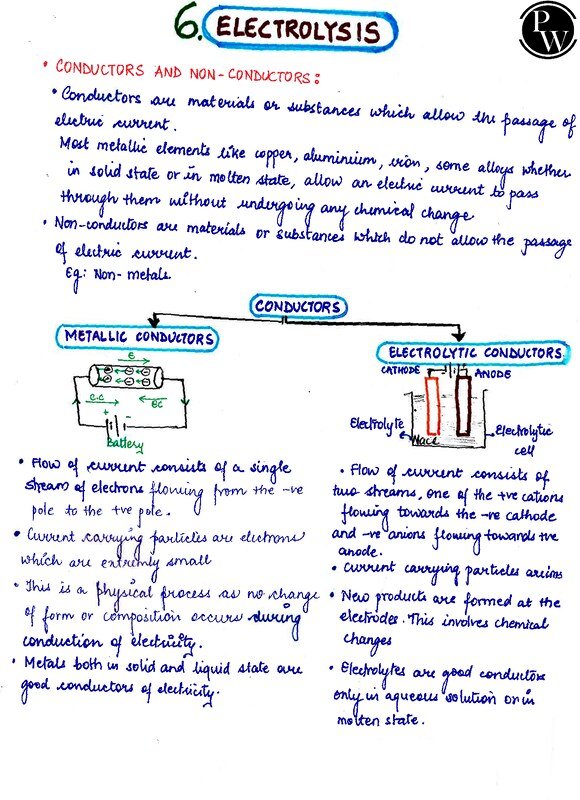 6. ELECTROLYSIS
PW
• CONDUCTORS AND NON-CONDUCTORS:
• Conductors are materials or substances which allow the passage of
electric current.
Most metallic elements like copper, aluminium, iron, some alloys whether
in solid state or in molten state, allow an electric current to pass
through them without undergoing any chemical change
• Non-conductors are materials or substances which do not allow the passage
of electric current.
Eg: Non-metals
CONDUCTORS
METALLIC CONDUCTORS
E
C.C
EC
+
-
Battery
• Flow of current consists of a single
stream of electrons flowing from the -ve
pole to the +ve pole.
• Current carrying particles are electrons
which are extremly small
• This is a physical process as no change
of form or composition occurs during
conduction of electricity.
• Metals both in solid and liquid state are
good conductors of electricity.
ELECTROLYTIC CONDUCTORS
CATHODE
ANODE
Electrolyte
NaCl
Electrolytic
cell
• Flow of current consists of
two streams, one of the +ve cations
flowing towards the -ve cathode
and -ve anions flowing towards +ve
anode.
• Current carrying particles are ions
• New products are formed at the
electrodes. This involves chemical
changes
• Electrolytes are good conductors
only in aqueous solution or in
molten state.